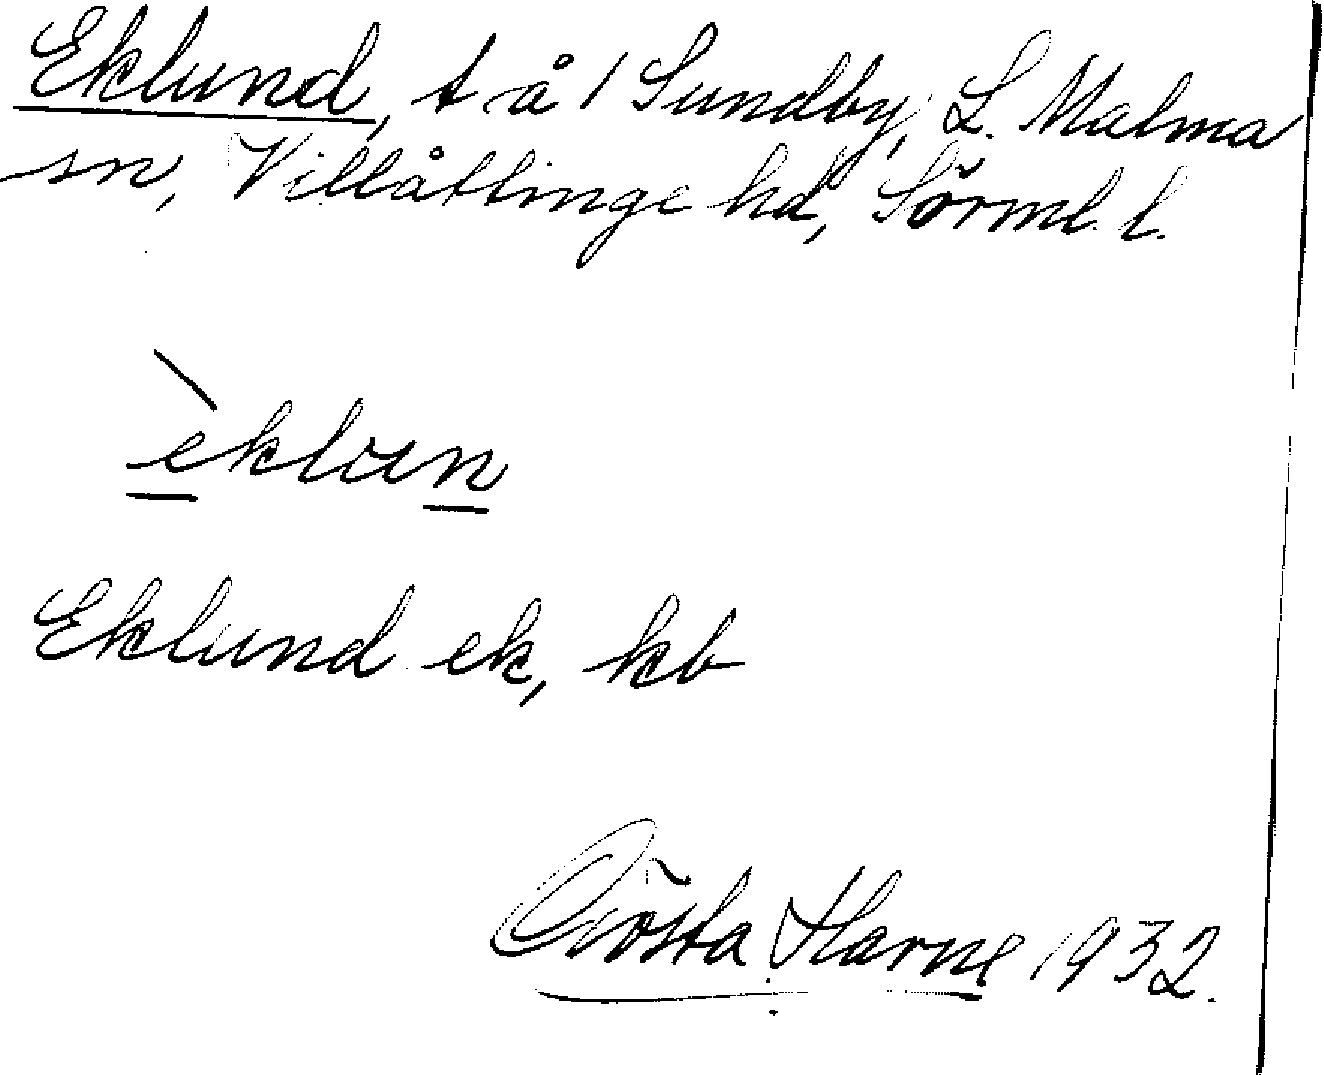 Eklund, t å 1 Sundby, L. Malma
sn, Villåttinge hd, Sörml. l.
èklun
Eklund ek, kb
Gösta Harne 1932.